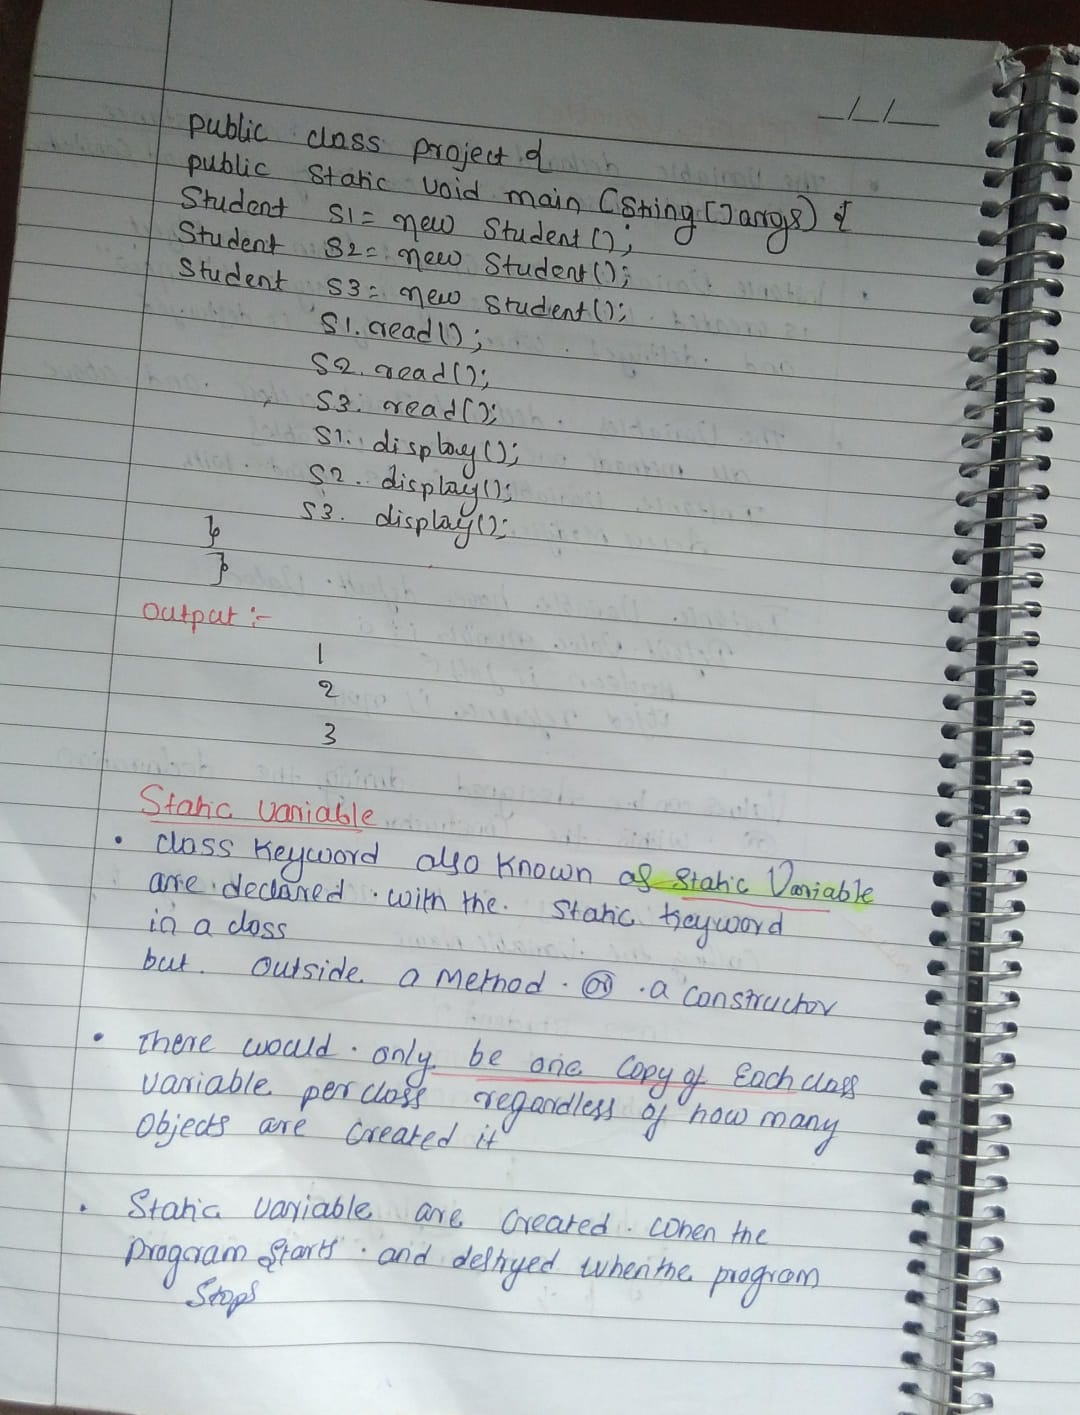 _/_/_
public class project {
public static void main (String[] args) {
Student S1 = new Student();
Student S2 = new Student();
Student S3 = new Student();
S1. read();
S2. read();
S3. read();
S1. display();
S2. display();
S3. display();
}
}
Output :-
1
2
3
Static variable
• class keyword also known as Static Variable
are declared with the static keyword
in a class
but outside a method or a constructor
• There would only be one copy of Each class
variable per class regardless of how many
Objects are created it
• Static variable are created when the
program starts and destryed when the program
Stops